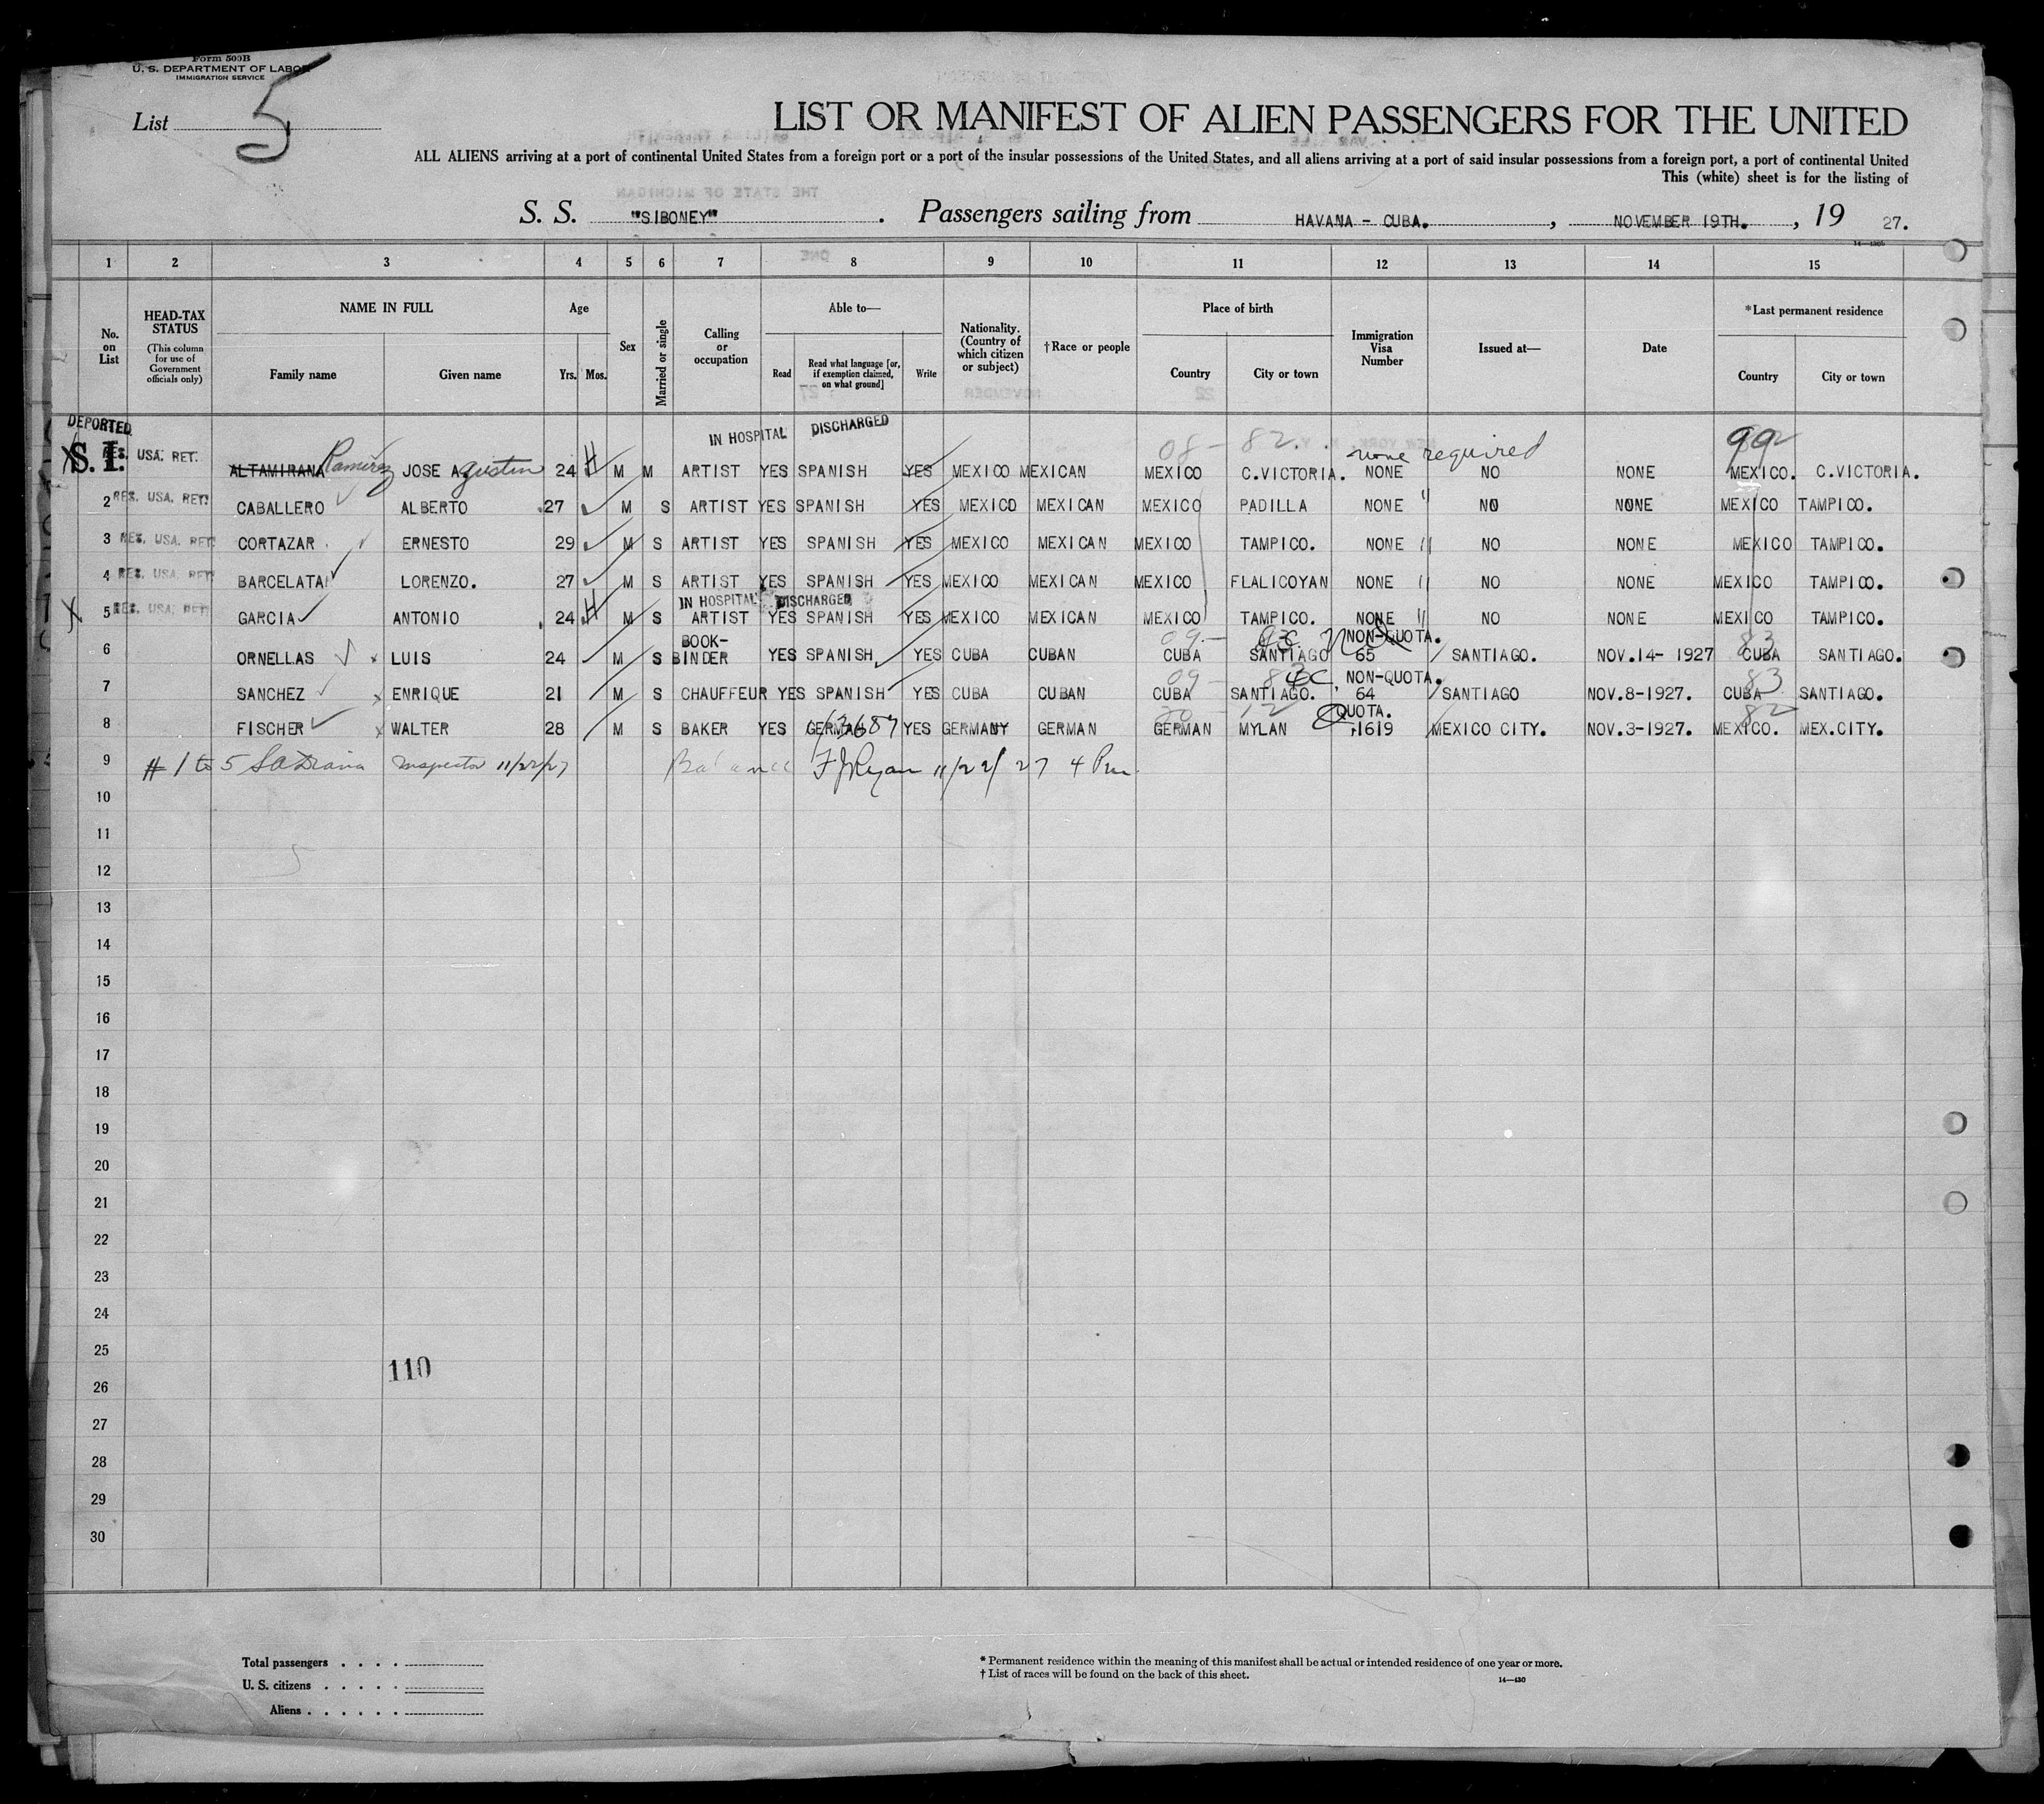 Form 500B
U. S. DEPARTMENT OF LABOR
IMMIGRATION SERVICE
List 5
LIST OR MANIFEST OF ALIEN PASSENGERS FOR THE UNITED
ALL ALIENS arriving at a port of continental United States from a foreign port or a port of the insular possessions of the United States, and all aliens arriving at a port of said insular possessions from a foreign port, a port of continental United
This (white) sheet is for the listing of
S. S. "SIBONEY". Passengers sailing from HAVANA - CUBA., NOVEMBER 19TH., 19 27.
1 2 3 4 5 6 7 8 9 10 11 12 13 14 15
No. on List
HEAD-TAX STATUS (This column for use of Government officials only)
NAME IN FULL
Family name Given name
Age
Yrs. Mos.
Sex
Married or single
Calling or occupation
Able to—
Read
Read what language [or, if exemption claimed, on what ground]
Write
Nationality. (Country of which citizen or subject)
†Race or people
Place of birth
Country City or town
Immigration Visa Number
Issued at—
Date
*Last permanent residence
Country City or town
DEPORTED
IN HOSPITAL DISCHARGED 08 - 82. none required 99
S. I. RES. USA. RET. ALTAMIRANA Ramirez JOSE Agustin 24 H M M ARTIST YES SPANISH YES MEXICO MEXICAN MEXICO C.VICTORIA. NONE NO NONE MEXICO. C.VICTORIA.
2 RES. USA. RET. CABALLERO ALBERTO 27 M S ARTIST YES SPANISH YES MEXICO MEXICAN MEXICO PADILLA NONE " NO NONE MEXICO TAMPICO.
3 RES. USA. RET. CORTAZAR ERNESTO 29 M S ARTIST YES SPANISH YES MEXICO MEXICAN MEXICO TAMPICO. NONE " NO NONE MEXICO TAMPICO.
4 RES. USA. RET. BARCELATA LORENZO. 27 M S ARTIST YES SPANISH YES MEXICO MEXICAN MEXICO FLALICOYAN NONE " NO NONE MEXICO TAMPICO.
IN HOSPITAL DISCHARGED
X 5 RES. USA. RET. GARCIA ANTONIO 24 H M S ARTIST YES SPANISH YES MEXICO MEXICAN MEXICO TAMPICO. NONE " NO NONE MEXICO TAMPICO.
BOOK- 09 - NON-QUOTA. 83
6 ORNELLAS LUIS 24 M S BINDER YES SPANISH YES CUBA CUBAN CUBA SANTIAGO 65 SANTIAGO. NOV.14- 1927 CUBA SANTIAGO.
09 - NON-QUOTA. 83
7 SANCHEZ ENRIQUE 21 M S CHAUFFEUR YES SPANISH YES CUBA CUBAN CUBA SANTIAGO. 64 SANTIAGO NOV.8-1927. CUBA SANTIAGO.
QUOTA. 82
8 FISCHER WALTER 28 M S BAKER YES GERMAN YES GERMANY GERMAN GERMAN MYLAN 1619 MEXICO CITY. NOV.3-1927. MEXICO. MEX.CITY.
9 # 1 to 5 Inspector 11/22/27 Balance F J Ryan 11/22/27 4 Pm.
10
11
12
13
14
15
16
17
18
19
20
21
22
23
24
25
110
26
27
28
29
30
Total passengers . . . .
U. S. citizens . . . . .
Aliens . . . . . .
* Permanent residence within the meaning of this manifest shall be actual or intended residence of one year or more.
† List of races will be found on the back of this sheet.
14—430